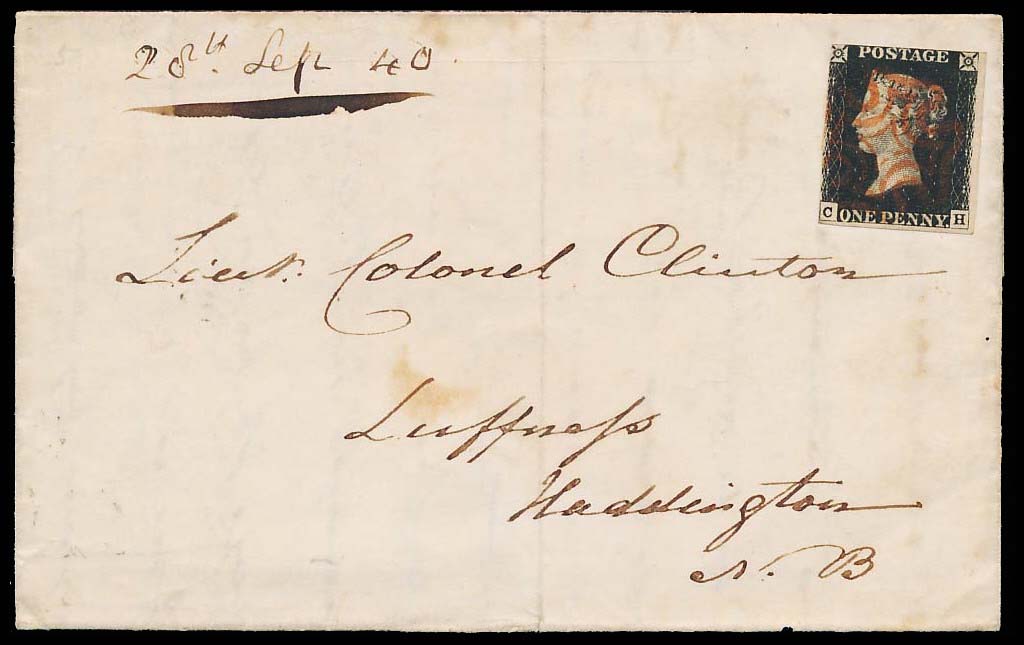 28th. Sep 40
POSTAGE
C ONE PENNY. H
Lieut. Colonel Clinton
Luffneſs
Haddington
N. B